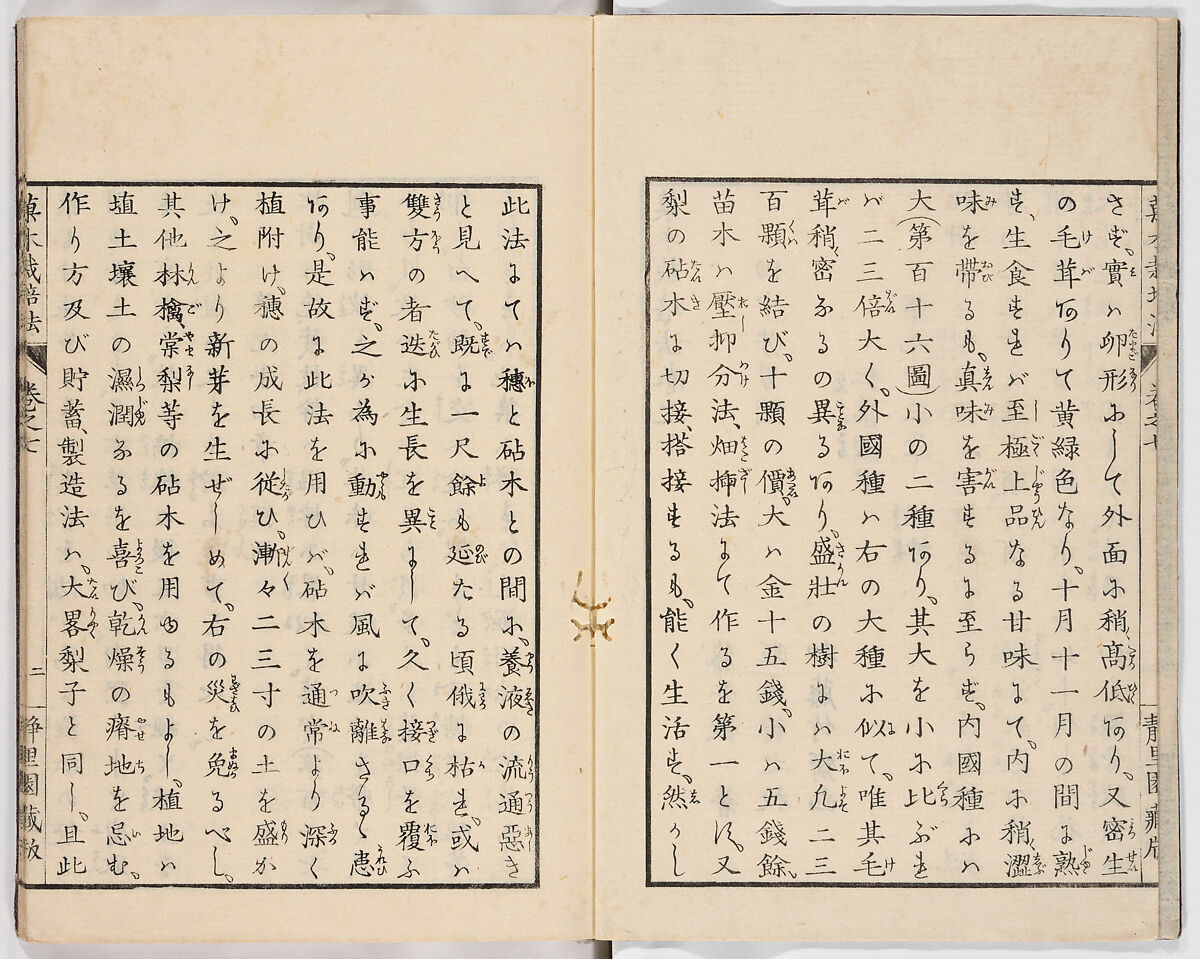 菓木栽培法　巻之七　静里園蔵版
さず、實ハ卵形にして外面に稍、高低あり、又密生
の毛茸ありて黄緑色なり、十月十一月の間に熟
す、生食すれバ至極上品なる甘味にて、内に稍澀
味を帶るも、真味を害するに至らず、内國種にハ
大(第百十六圖)小の二種あり、其大を小に比ぶれ
バ二三倍大く、外國種ハ右の大種に似て、唯其毛
茸稍密なるの異るあり、盛壯の樹にハ大凢二三
百顆を結び、十顆の價、大ハ金十五錢、小ハ五錢餘、
苗木ハ壓抑分法、畑揷法にて作るを第一とす、又
梨の砧木に切接、搭接するも、能く生活す、然かし
此法にてハ穗と砧木との間に、養液の流通惡き
と見へて、既に一尺餘も延たる頃俄に枯れ、或ハ
雙方の者迭に生長を異にして、久く接口を覆ふ
事能ハず、之が為に動すれバ風に吹離さるゝ患
あり、是故に此法を用ひバ、砧木を通常より深く
植附け、穗の成長に從ひ、漸々二三寸の土を盛か
け、之より新芽を生ぜしめて、右の災を免るべし、
其他林檎、棠梨等の砧木を用ゆるもよし、植地ハ
埴土壤土の濕潤なるを喜び、乾燥の瘠地を忌む、
作り方及び貯蓄、製造法ハ、大畧梨子と同し、且此
菓木栽培法　巻之七　二　静里園蔵版